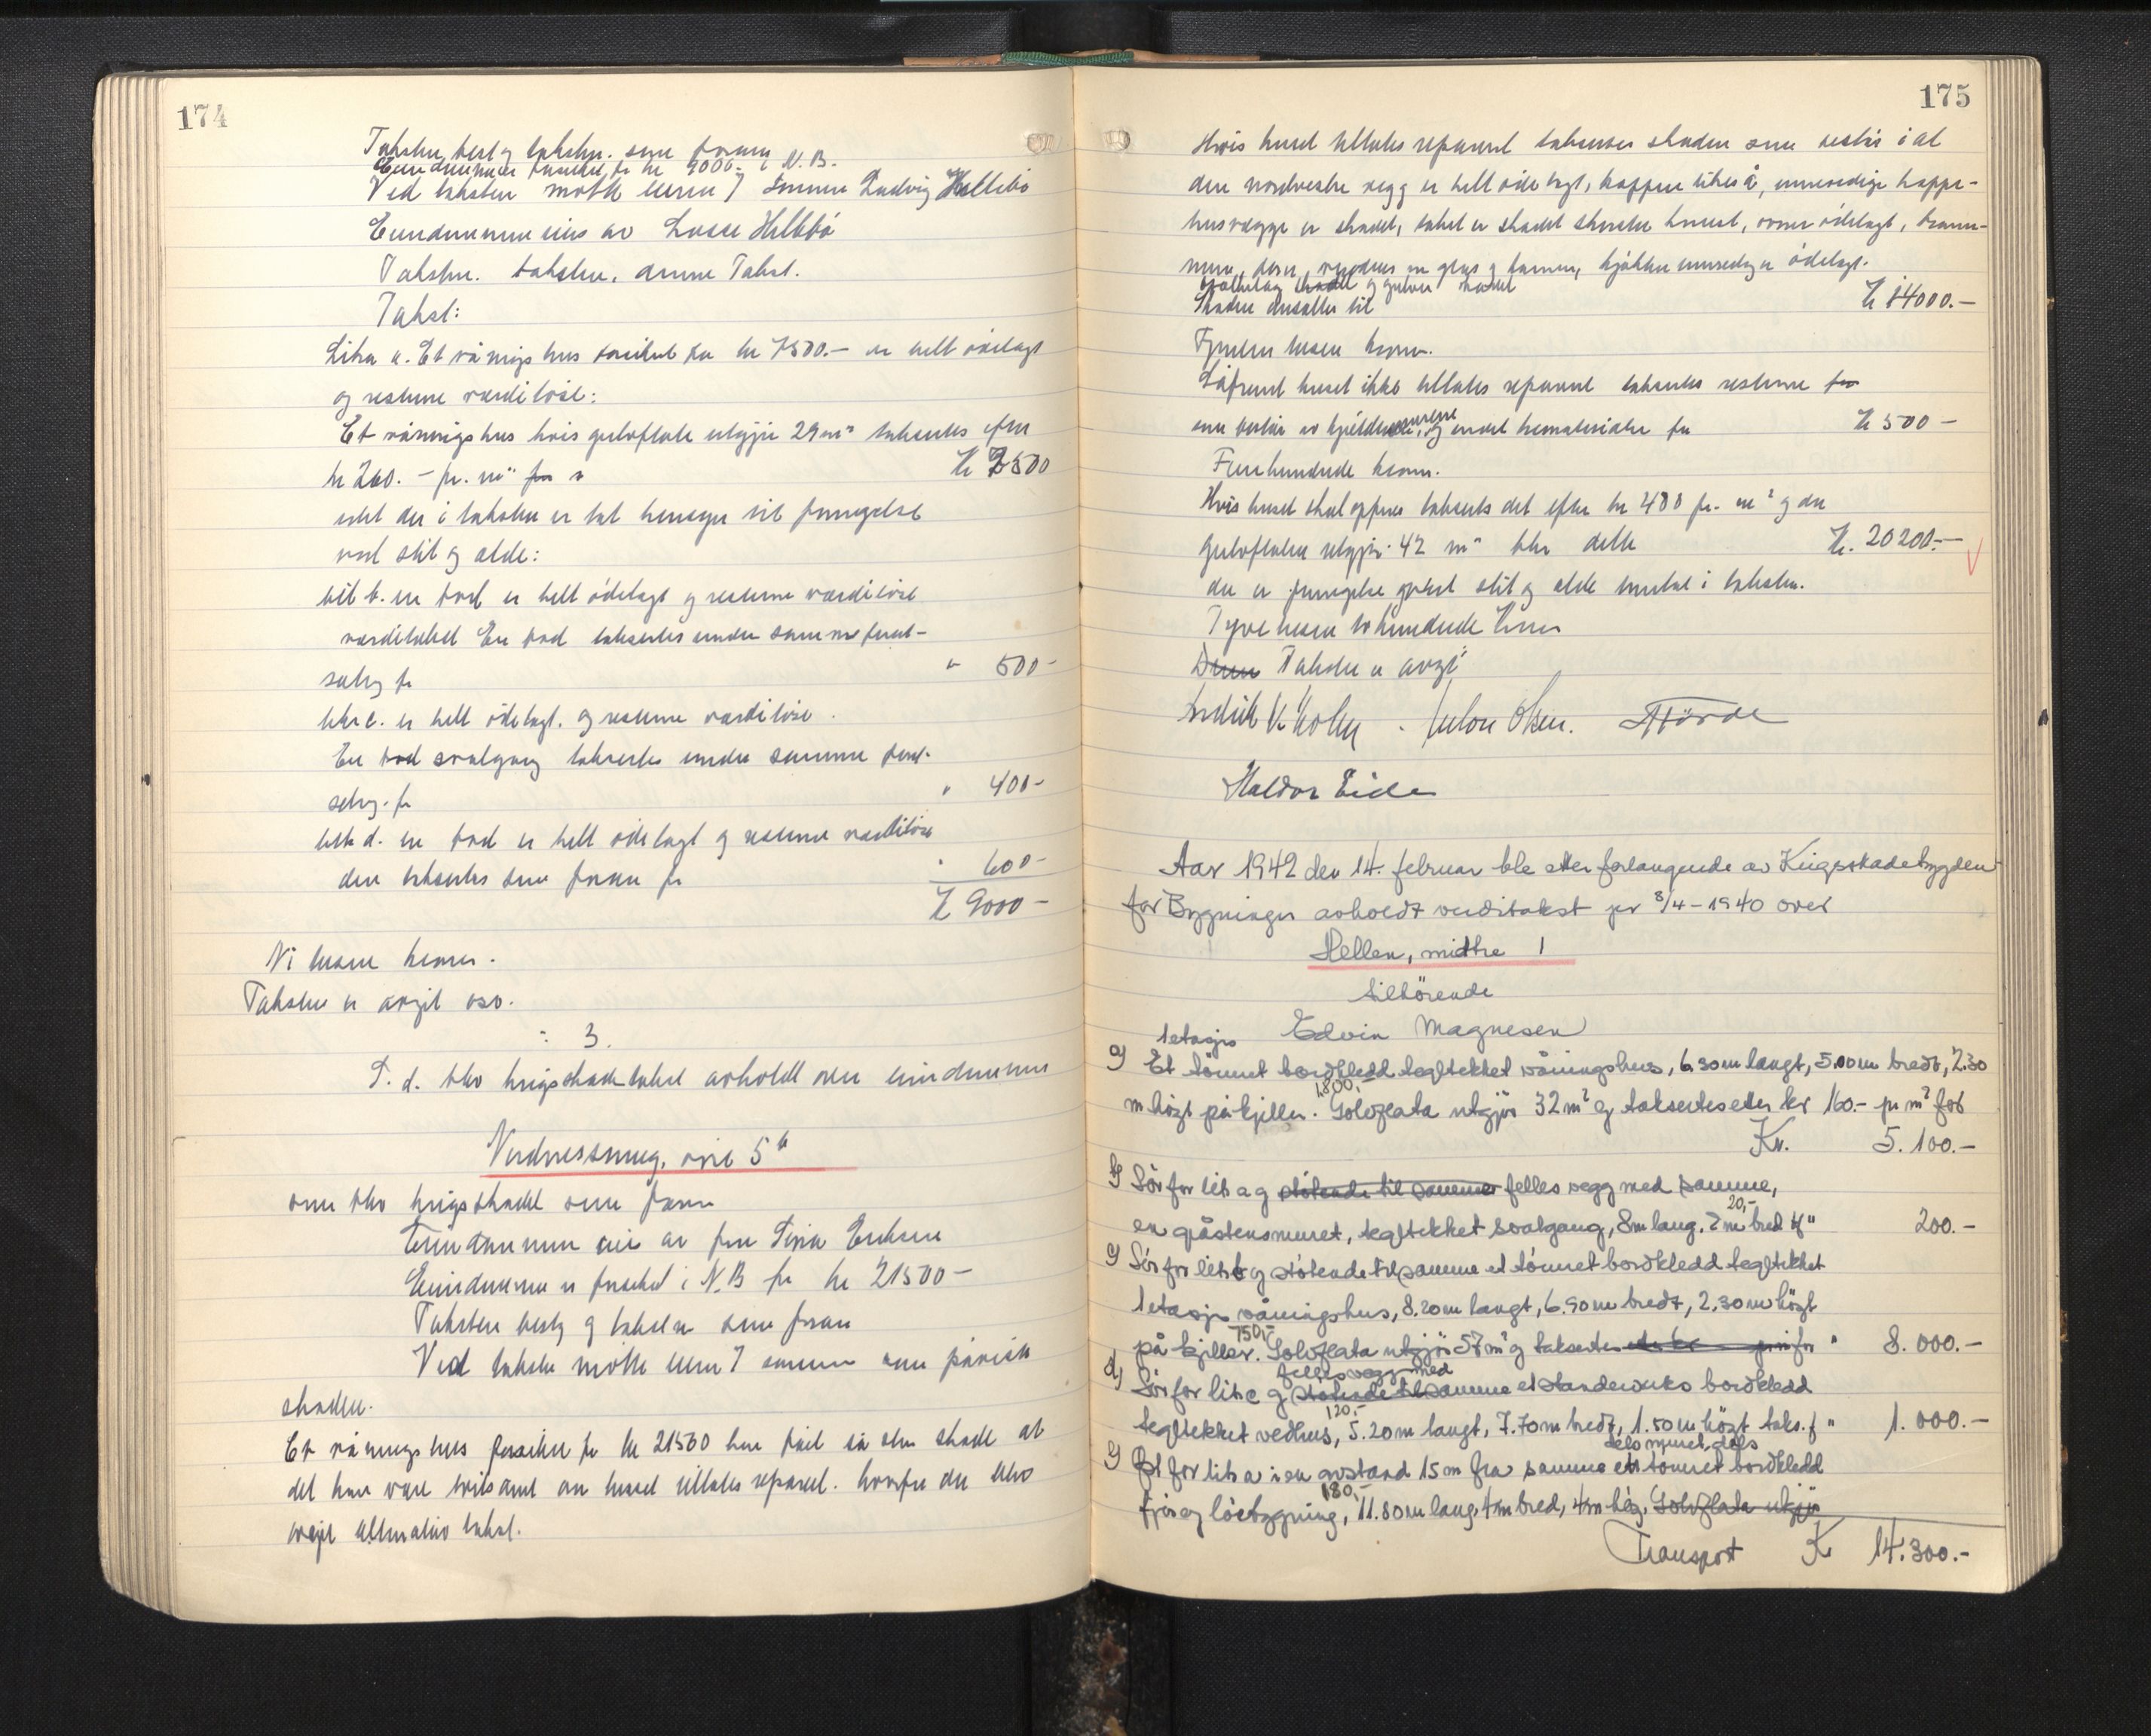 174
Takstm. best og takstm. som foran
Eiendommen er forsikret for kr 9000.- i N.B.
Ved taksten møtte eieren 7 sønnen Ludvig Hellebö
Eiendommen eies av Lasse Hellebö
Takstm. takstm. denne Takst.
Takst:
Litra a. Et våningshus forsikret for kr 7500.- er helt ödelagt
og resterne værdilöse:
Et våningshus hvis gulvflate utgjör 29 m² takseres efter
kr 260.- pr. m² for
kr 7500
idet der i taksten er tat hensyn til forringelse
ved slit og elde:
lit b. en bod er helt ödelagt og resterne værdilöse
En bod takseres under samme forut-
setn. for
" 500-
litr c. er helt ödelagt. og resterne værdilöse.
En bod svalgang takseres under samme forut-
setn. for
" 400-
litr d. en bod er helt ödelagt og resterne værdilöse
den takseres som foran for
" 600-
kr 9000-
Ni tusen kroner.
Taksten er avgit osv.
3.
S. d. blev krigsskadetakst avholdt over eiendommen
övre 5 b
som blev krigsskadet som foran
Eiendommen eies av fru Eriksen
Eiendommen er forsikret i N.B for kr 21500-
Taksten best og takstm som foran
Ved taksten møtte eieren 7 sønnen som påviste
skaden.
Et våningshus forsikret for kr 21500 har fåt så stor skade at
det kan være tvilsomt om huset tillates reparert. hvorfor der blev
avgit alternativ takst.
175
Hvis huset tillates reparert takseres skaden som består i at
den nordvestre vegg er helt ödelagt, trappen likeså, innvendige trappe-
husvegger er skadet, taket er skadet skorsten knust, ovner ödelagt, kram-
mene, döre, vinduer m glas og karmer, kjökken innredning er ödelagt.
og gulver skadet
Skaden ansettes til
kr 14000.-
Fjorten tusen kroner.
Såfremt huset ikke tillates reparert takseres resterne
som består av kjeldermurene og endel trematerialer for
kr 500-
Fem hundrede kroner.
Hvis huset skal opföres takseres det efter kr 480 pr. m² og da
gulvflaten utgjör 42 m² blir dette
kr. 20200.-
der er forringelse grundet slit og elde inntat i taksten.
Tyve tusen to hundrede kroner
Denne Taksten er avgit
Anton Olsen.
Haldor Eide
Aar 1942 den 14. februar ble etter forlangende av Krigsskadetrygden
for Bygninger avholdt verditakst pr 8/4-1940 over
Hellen, midtre 1
tilhörende
Edvin Magnesen
1etasjes
a) Et tömret bordkledd teglteket våningshus, 6.30m langt, 5.00m bredt, 2.30
1.800.-
m högt på kjeller. Golvflata utgjör 32 m² og takseres etter kr 160.- pr m² for
Kr. 5.100.-
b) Sör for litr a og stötende til samme felles vegg med samme,
20,-
en gråstensmuret, teglteket svalgang, 8m lang, 2m bred tf " 200.-
c) Sör for litr b og stötende til samme et tömret bordkledd teglteket
1etasjes våningshus, 8.20m langt, 6.90m bredt, 2.30m högt
750,-
på kjeller. Golvflata utgjör 57 m² og takseres etter kr pr m² for " 8.000.-
felles vegg med
d) Sör for litr c og stötende til samme et standerverks bordkledd
120,-
teglteket vedhus, 5.20m langt, 7.70m bredt, 1.50m högt taks. f " 1.000.-
dels muret, dels
e) Öst for litr a i en avstand 15 m fra samme et tömret bordkledd
180,-
fjös og löebygning, 11.80m lang, 4m bred, 4m hög. Golvflata utgjör
Transport Kr 14.300.-